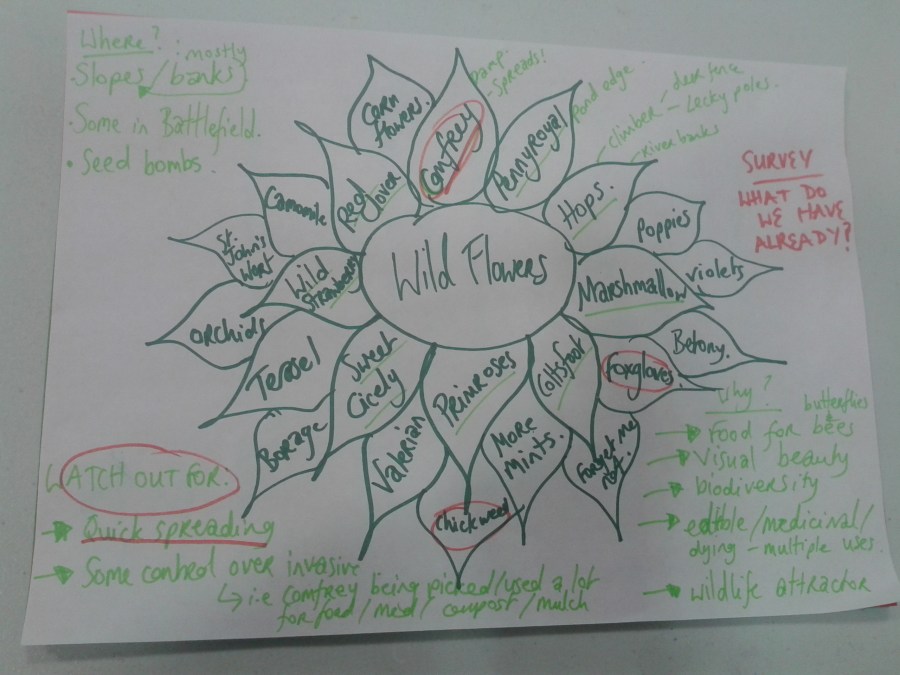 Where?
: mostly
• Slopes/banks
• Some in Battlefield.
• Seed bombs.
Damp.
- Spreads!
Pond edge.
climber - deer fence
- Lecky poles.
River banks
SURVEY
WHAT DO
WE HAVE
ALREADY?
Wild Flowers
Corn
flowers.
Comfrey
Pennyroyal
Hops.
Poppies
Marshmallow
violets
Betony.
Foxgloves
Coltsfoot
Forget me
not.
More
Mints.
Primroses
Chickweed
Valerian
Sweet
Cicely
Borage
Teasel
orchids
Wild
Strawberry
St.
John's
Wort
Camomile
Red
clover
WATCH OUT FOR:
→ Quick spreading
→ Some control over invasive
↳ i.e comfrey being picked/used a lot
for food/med/compost/mulch
Why?
butterflies
&
→ Food for bees
→ Visual beauty
→ biodiversity
→ edible/medicinal/
dying - multiple uses.
→ Wildlife attractor